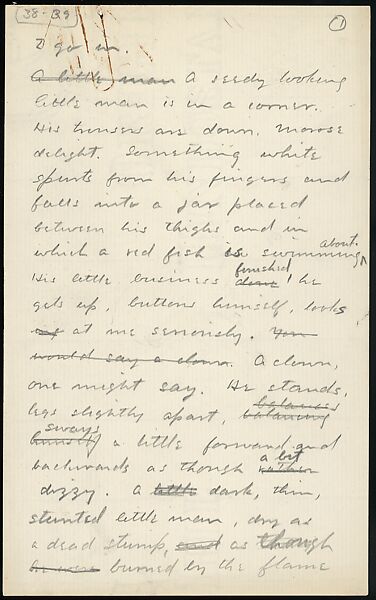 38-39
1
I go in.
A little man A seedy looking
little man is in a corner.
His trousers are down. Morose
delight. Something white
spurts from his fingers and
falls into a jar placed
between his thighs and in
which a red fish is swimming about.
His little business done finished! he
gets up, buttons himself, looks
at me seriously. You
would say a clown. A clown,
one might say. He stands,
legs slightly apart, balancing balances
himself sways a little forward and
backwards as though rather a bit
dizzy. A little dark, thin,
stunted little man, dry as
a dead stump, and as though
he were burned by the flame